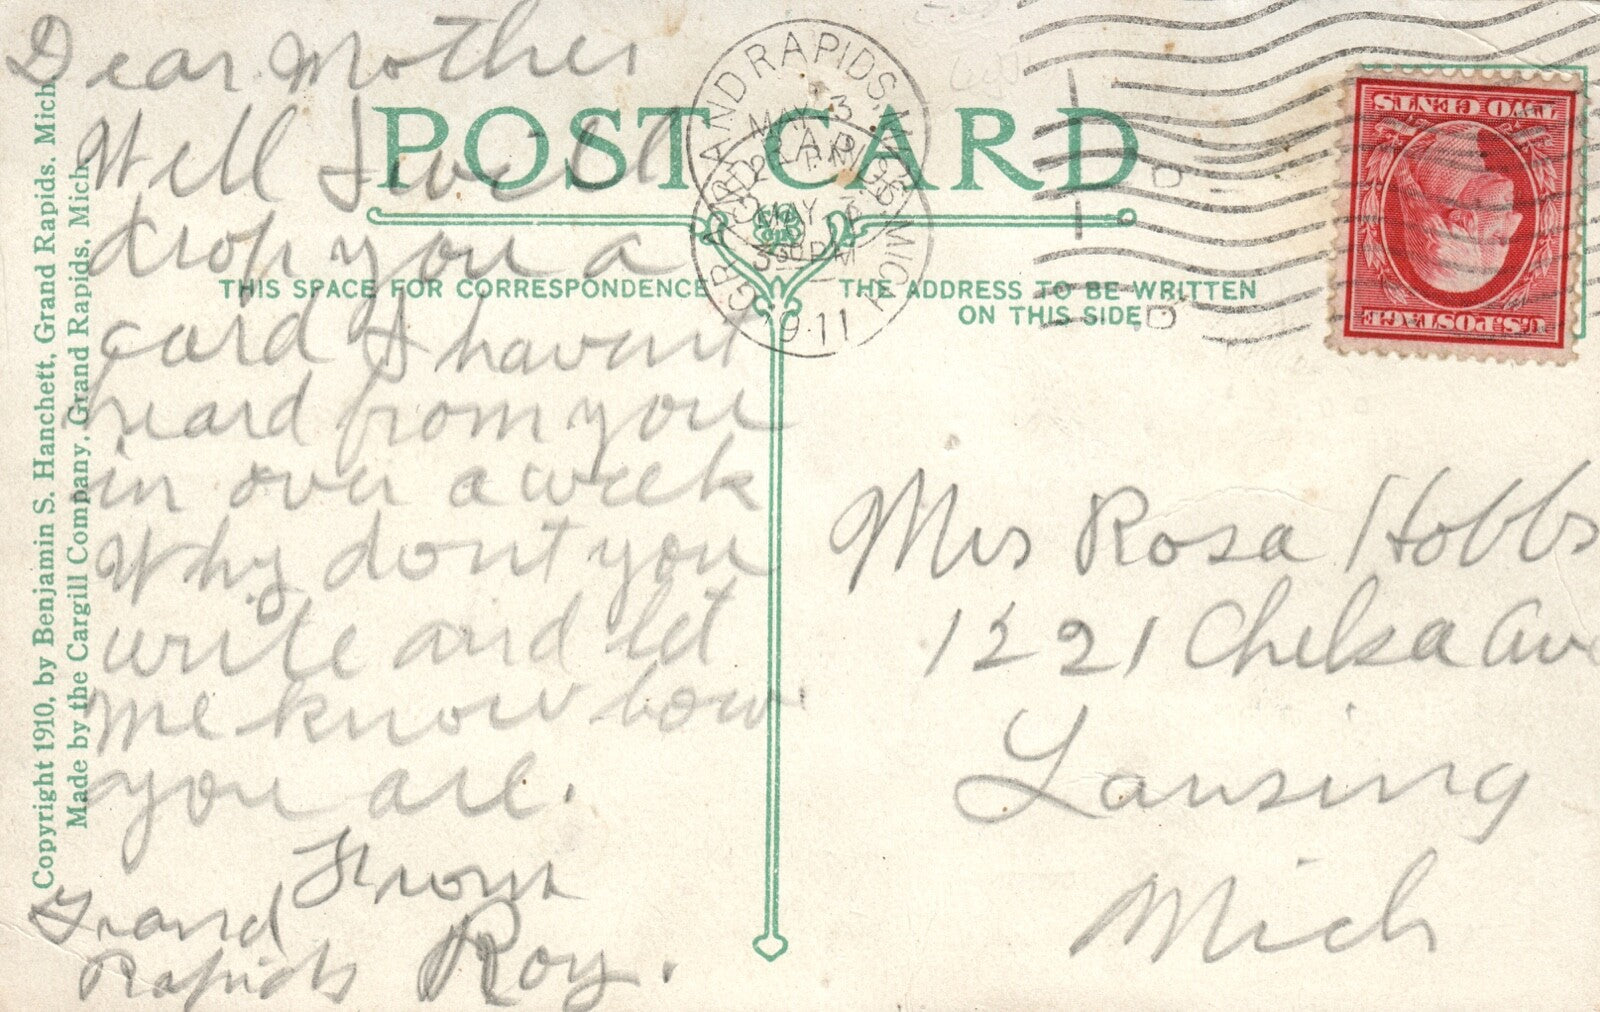 Dear Mother
Well I will
drop you a
card I havent
heard from you
in over a week
Why dont you
write and let
me know how
you are.
From
Grand
Rapids Roy.
POST CARD
THIS SPACE FOR CORRESPONDENCE
THE ADDRESS TO BE WRITTEN
ON THIS SIDE
Copyright 1910, by Benjamin S. Hanchett, Grand Rapids. Mich.
Made by the Cargill Company, Grand Rapids, Mich.
GRAND RAPIDS, MICH
MAY 3
MAY 3
330PM
1911
D
D
U.S.POSTAGE
TWO CENTS
Mrs Rosa Hobbs
1221 Chelsa Ave
Lansing
Mich